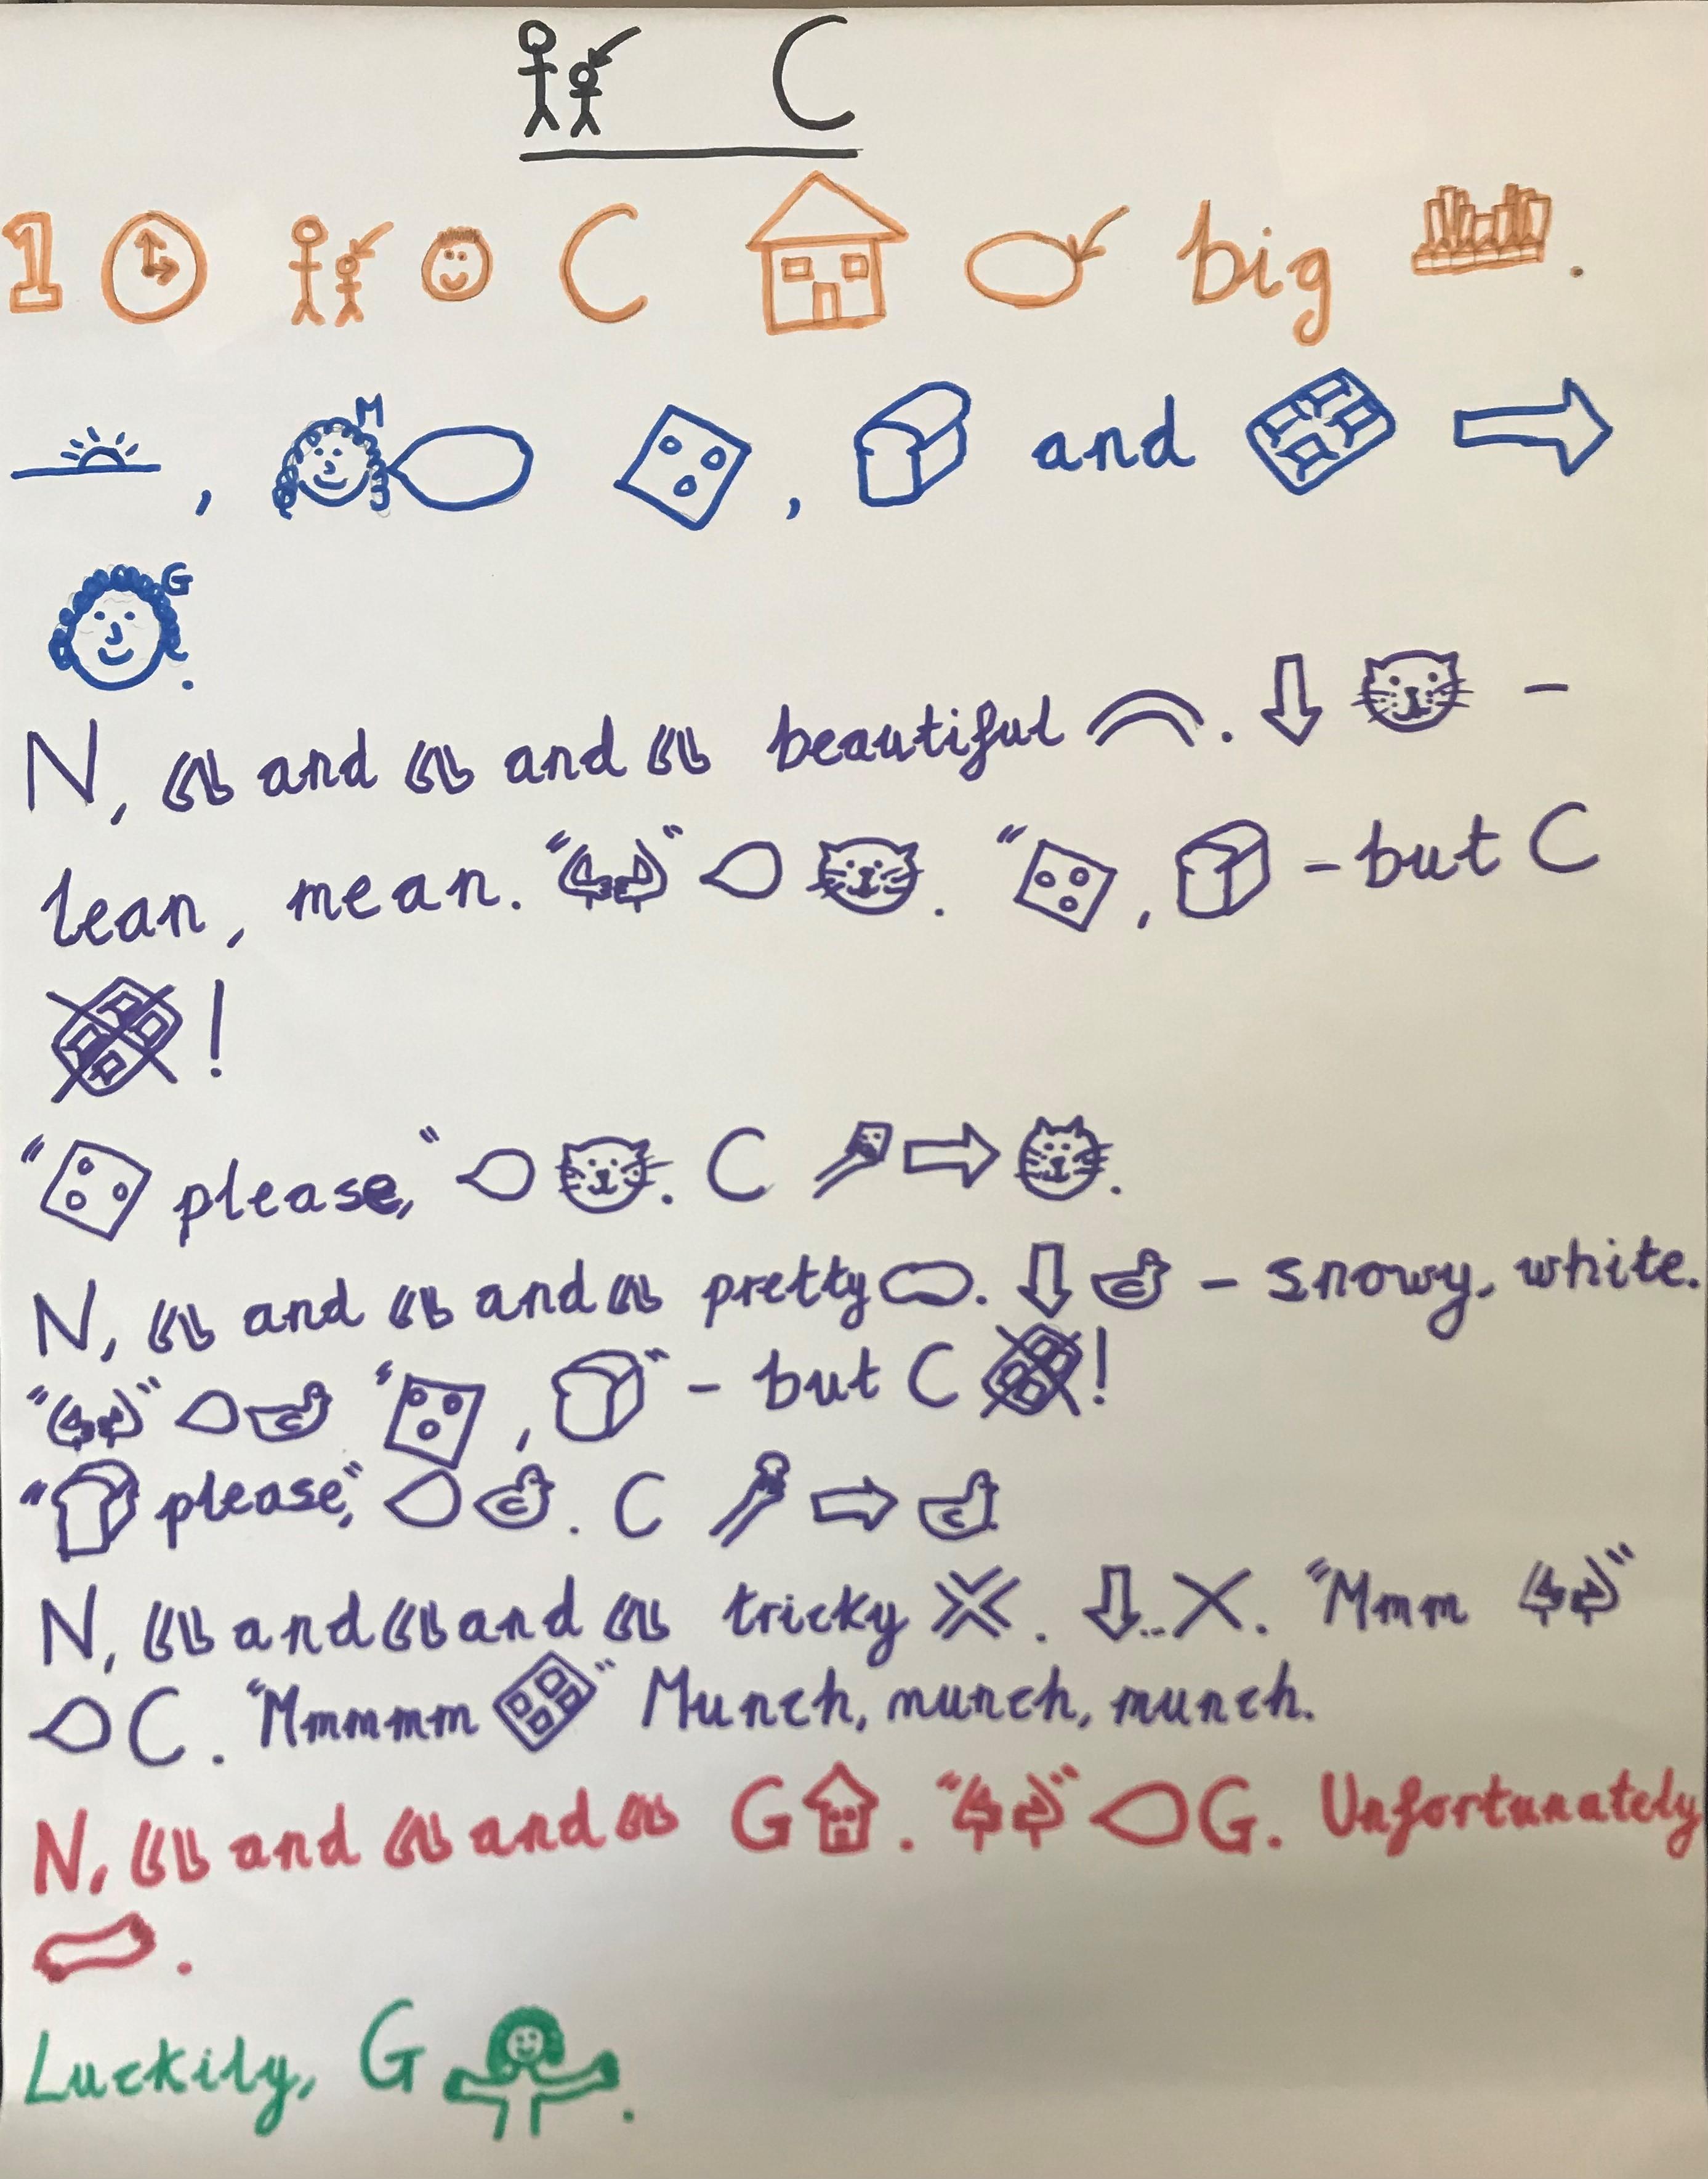 C
1 C big .
, M , and
G .
N, and and beautiful . -
lean, mean. " " . " , - but C
!
" please," . C .
N, and and pretty . - snowy, white.
" " " , " - but C !
" please," . C
N, and and tricky . .. X. "Mmm "
C. "Mmmmm " Munch, munch, munch.
N, and and G . " " G. Unfortunately
.
Luckily, G .